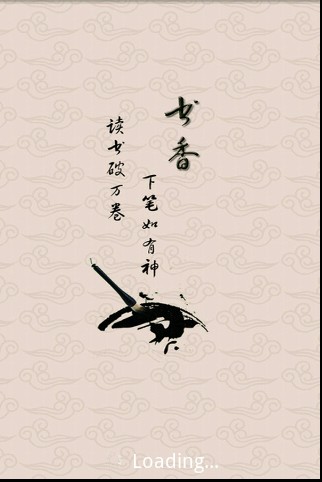 书香
读书破万卷
下笔如有神
Loading...